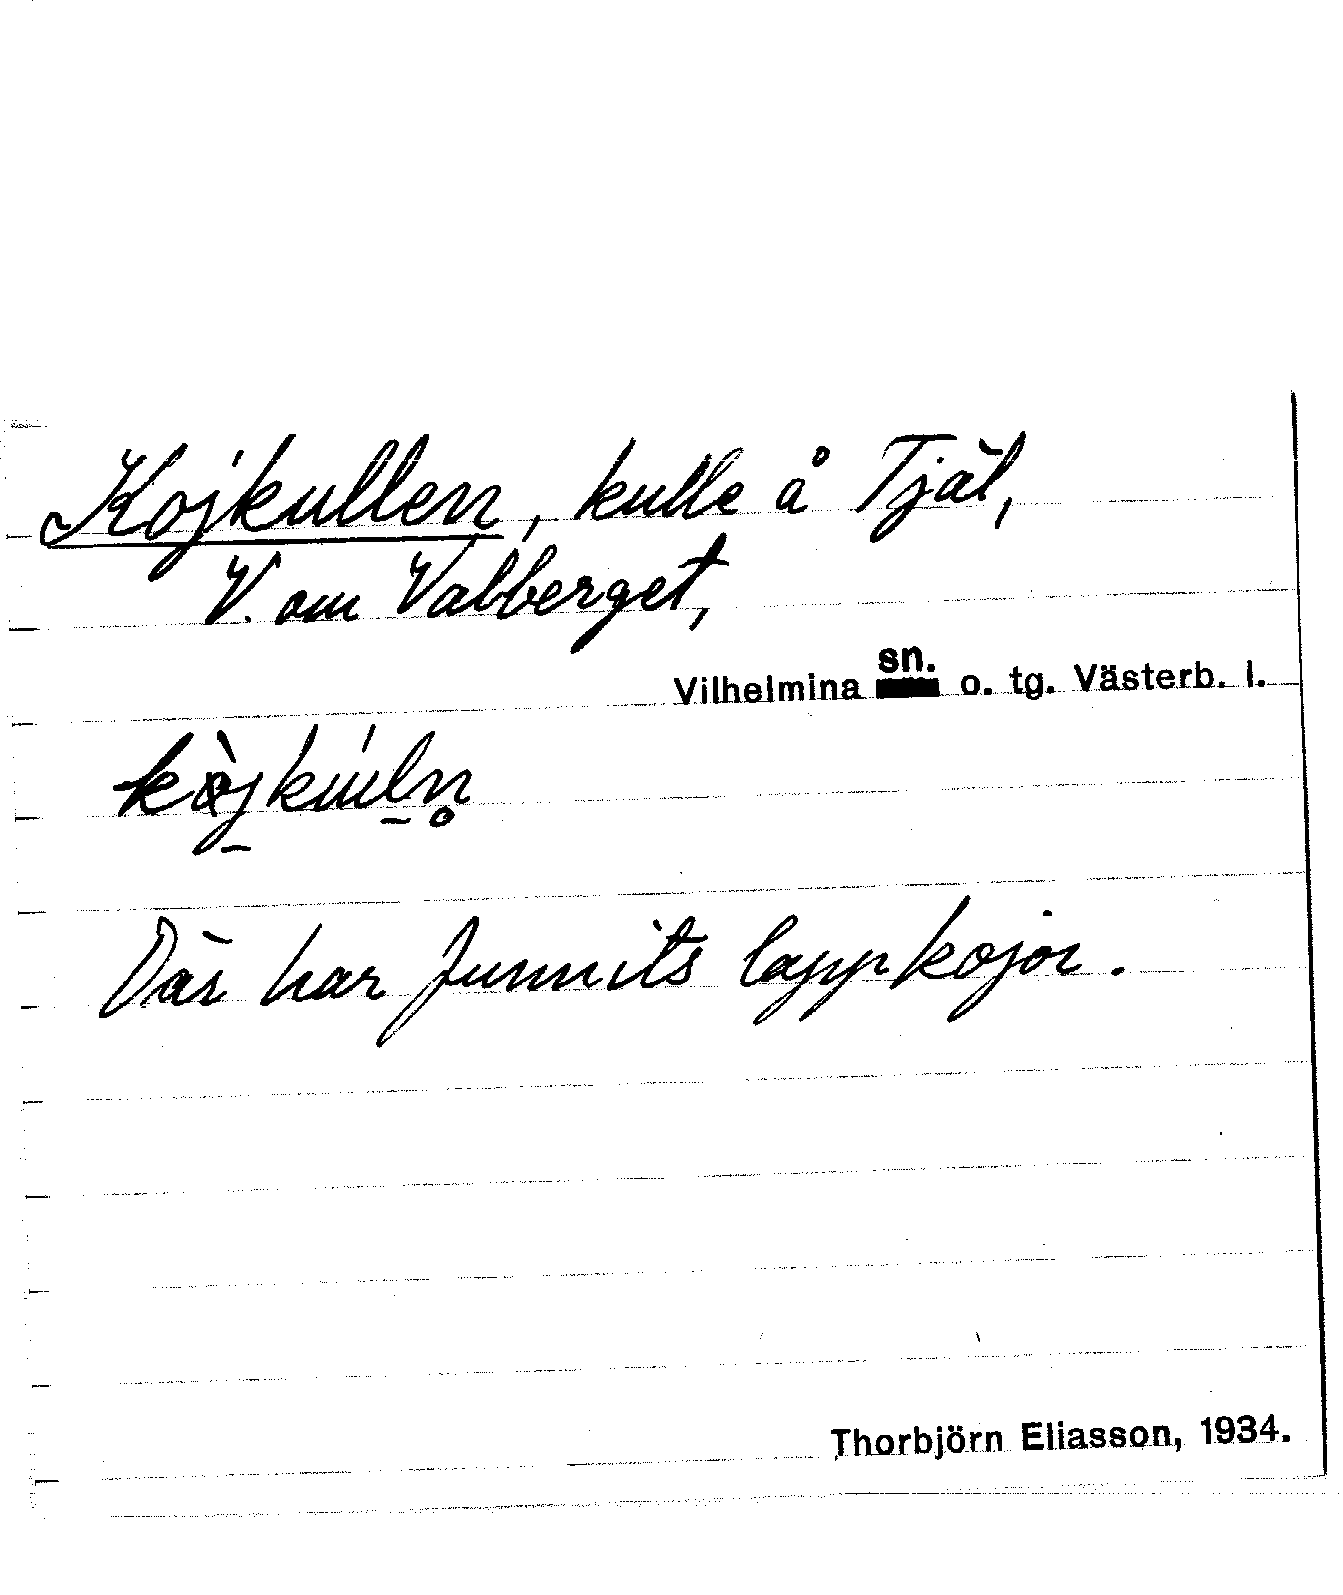 Kojkullen, kulle å Tjäl,
V. om Valberget,
sn.
Vilhelmina o. tg. Västerb. l.
Där har funnits lappkojor.
Thorbjörn Eliasson, 1934.